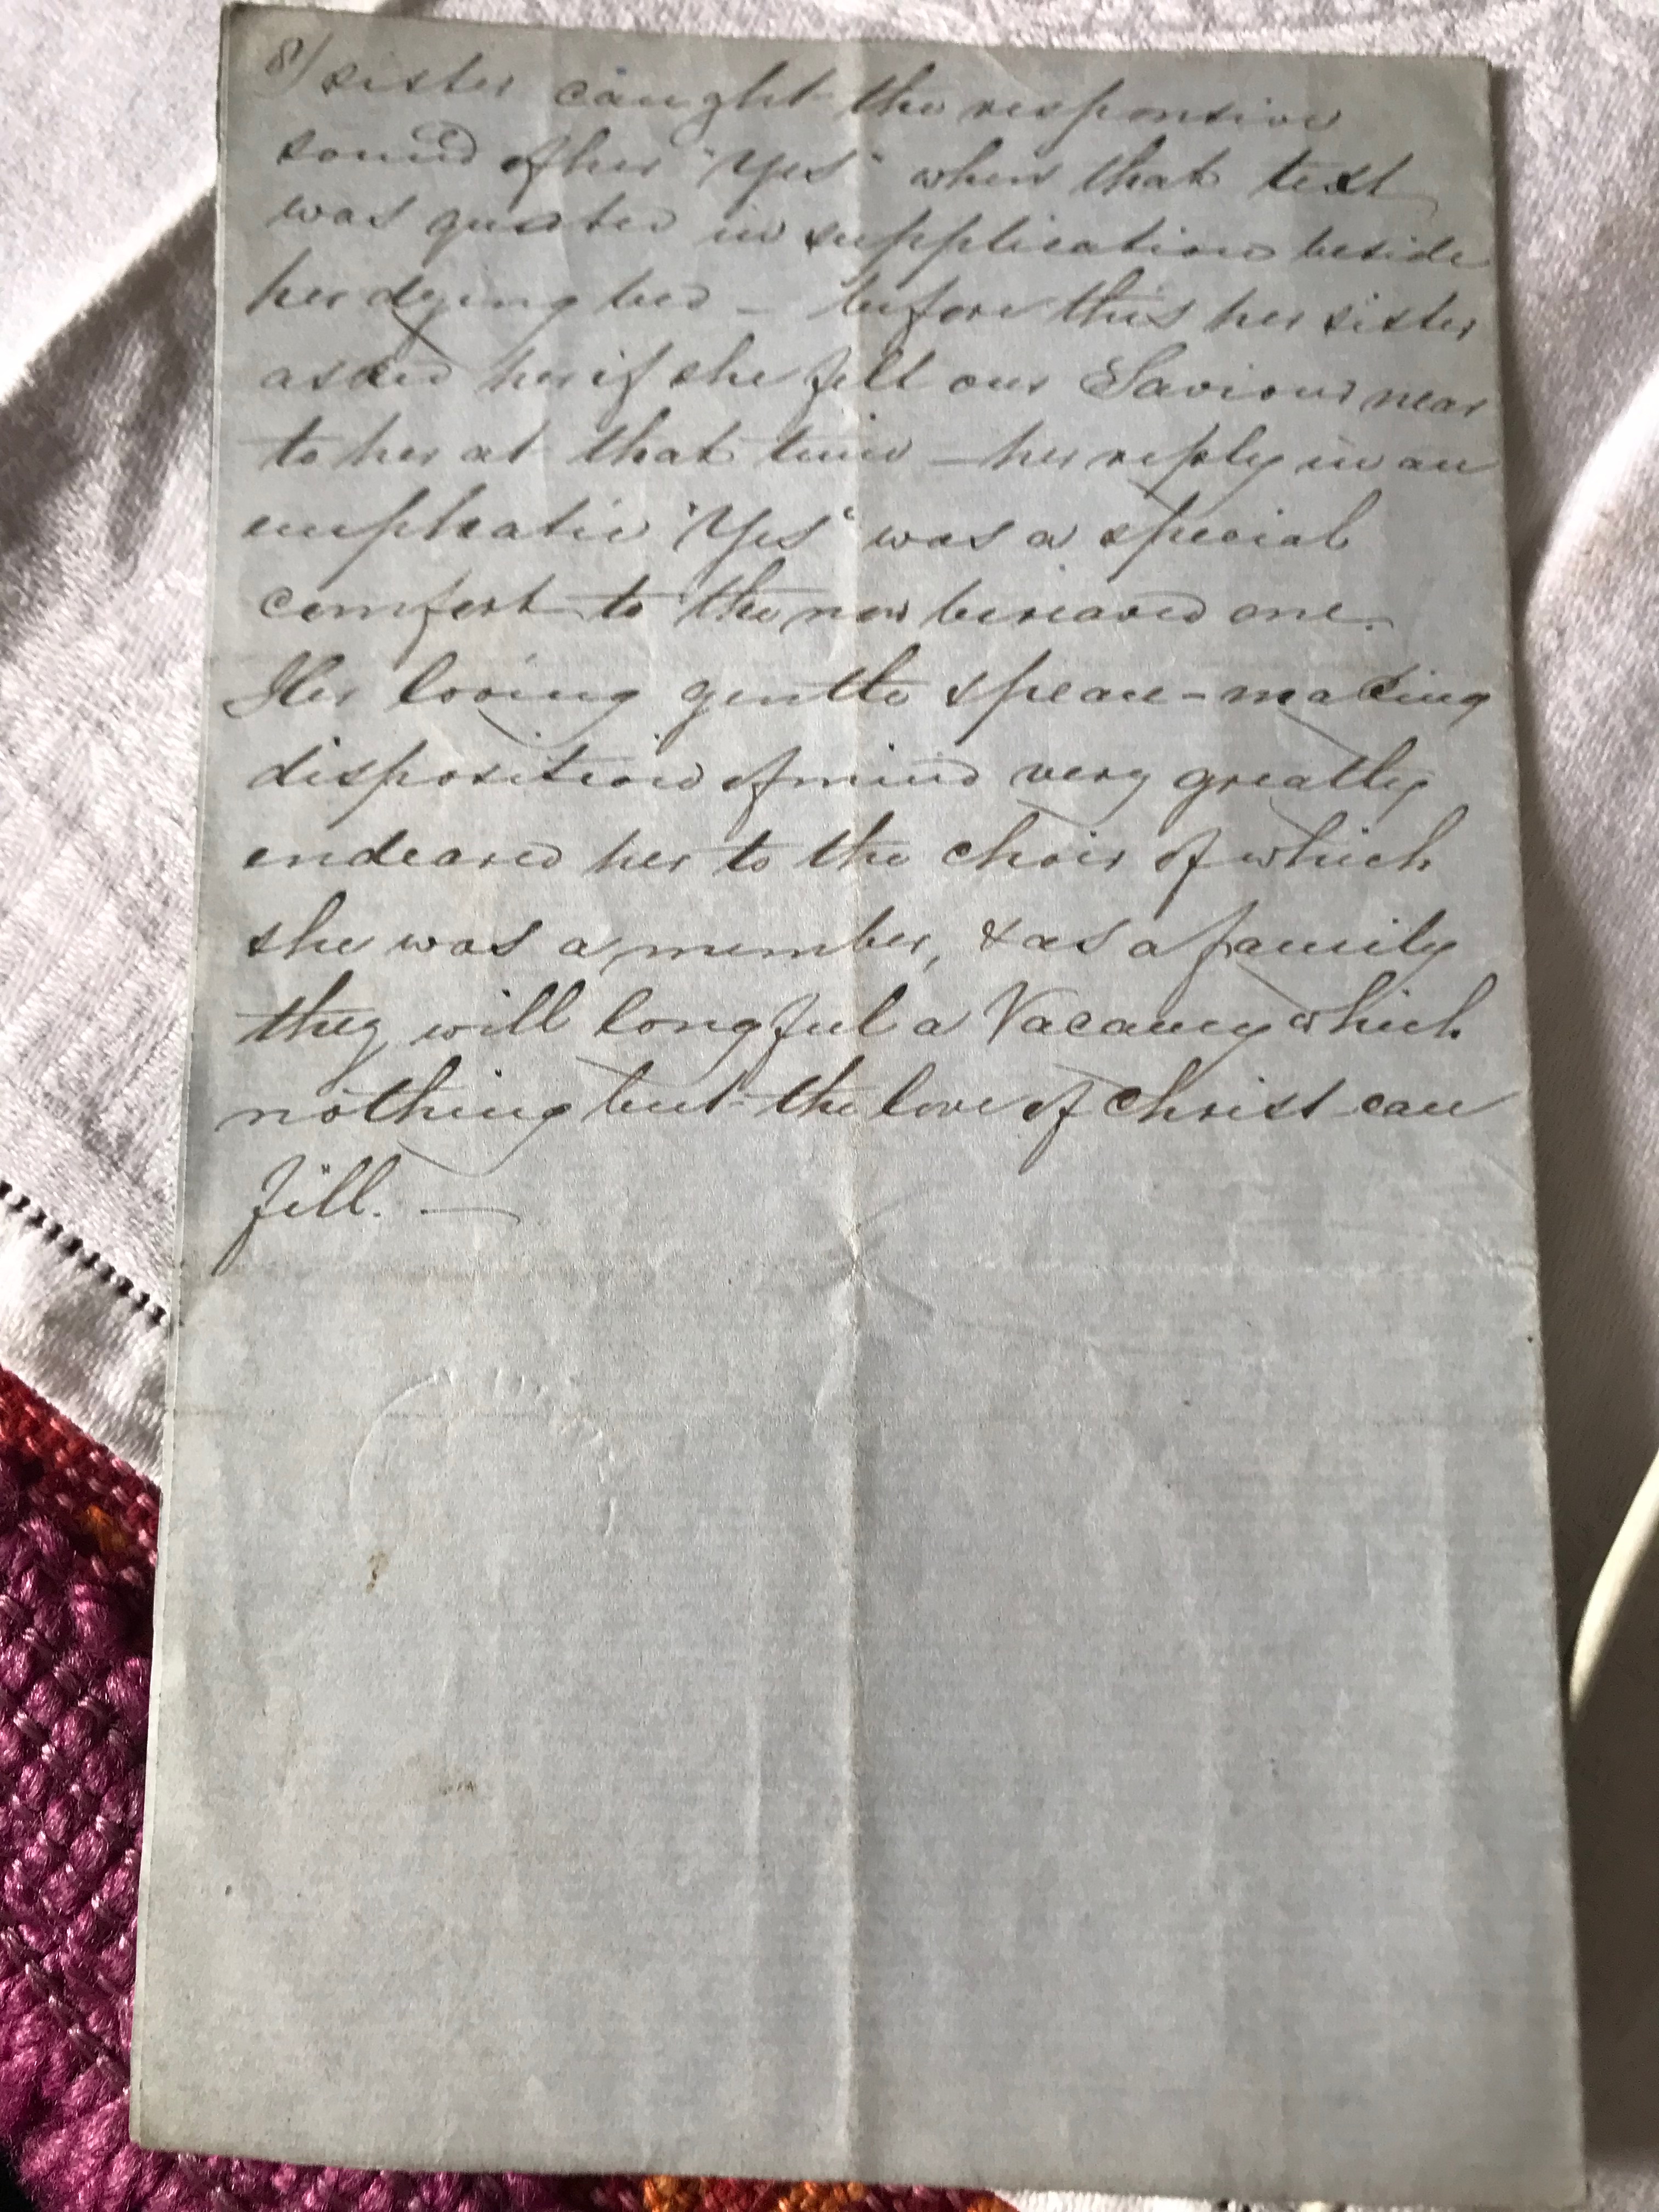 8/ sister caught the responsive
sound of her "Yes" when that text
was quoted in supplication beside
her dying bed – before this her sister
asked her if she felt our Saviour near
to her at that time – her reply in an
emphatic "Yes" was a special
comfort to the now bereaved one.
Her loving gentle &peace-making
disposition of mind very greatly
endeared her to the choir of which
she was a member, & as a family
they will long feel a Vacancy which
nothing but the love of Christ can
fill. —